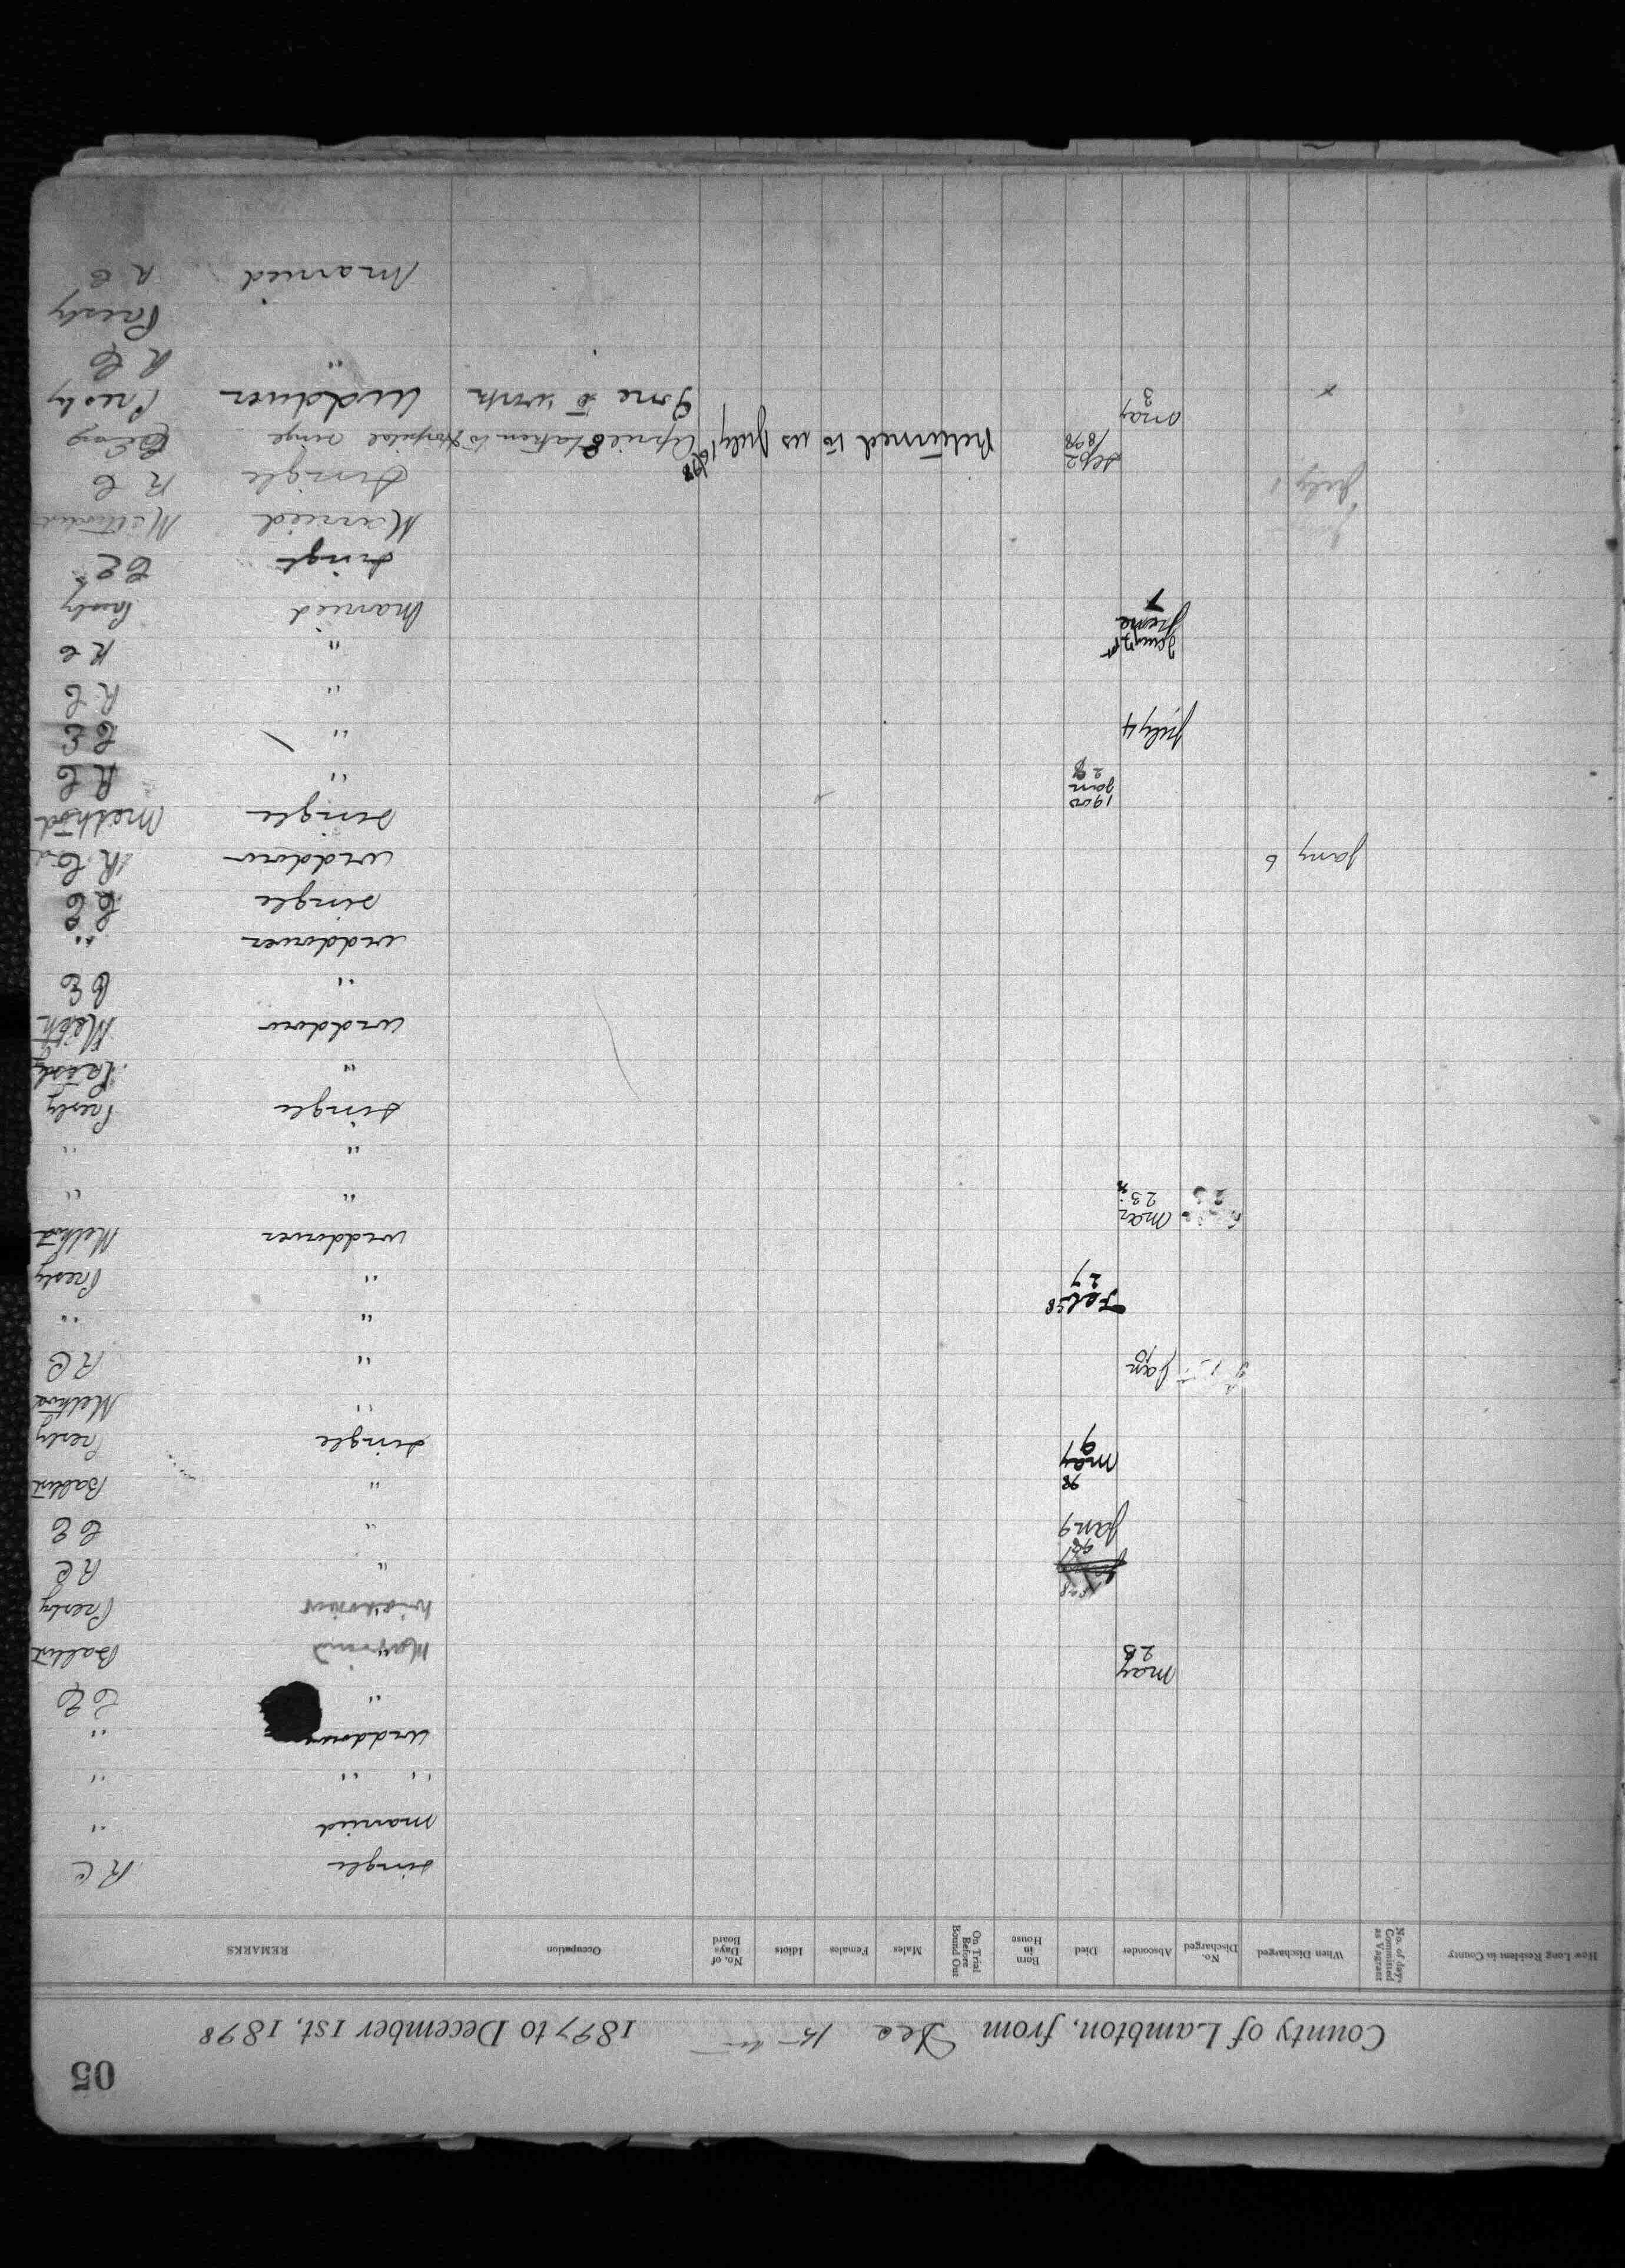 05
County of Lambton, from Dec 15 1897 to December 1st, 1898
How Long Resident in County
No. of days Committed as Vagrant
When Discharged
No. Discharged
Absconder
Died
Born in House
On Trial Before Bound Out
Males
Females
Idiots
No. of Days Board
Occupation
REMARKS
single R C
married "
" " "
widower "
" C E
May 28 Married Baptist
widower Presby
" R C
Jan 9 " C E
98 May 9 " Baptist
single Presby
" Method
Jan 10 " R C
" "
Feb 98 27 " Presby
Mar 23 widower Method
" "
" "
single Presby
" Presby
widow Meth
" C E
widower "
single C E
Jany 6 widow R C
single Method
1900 Jan 28 " R C
July 4 " C E
" R C
" R C
June 7 Married Presby
single C E
Married Methodist
July 1 single R C
Sep 2 1898 Returned to us July 1 1898 April taken to Hospital single
May 3 Gone to work widower Presby
" R C
Presby
Married R C